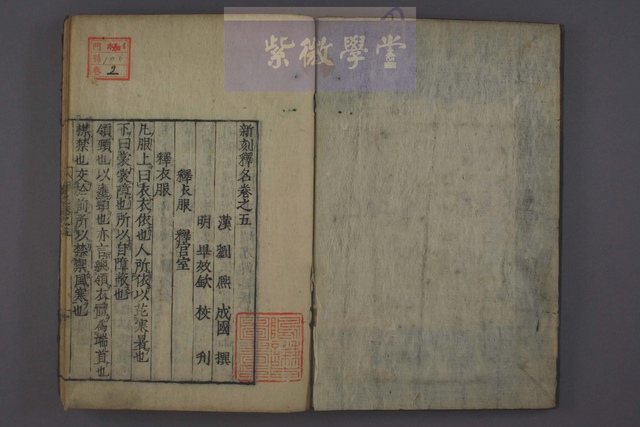 紫微學堂
2
新刻釋名卷之五
漢 劉熙 成國 撰
明 畢效欽 校刊
釋衣服 釋宮室
釋衣服
凡服上曰衣衣依也人所依以芘寒暑也
下曰裳裳障也所以自障蔽也
領頸也以壅頸也亦言總領衣體爲端首也
襟禁也交於前所以禁禦風寒也